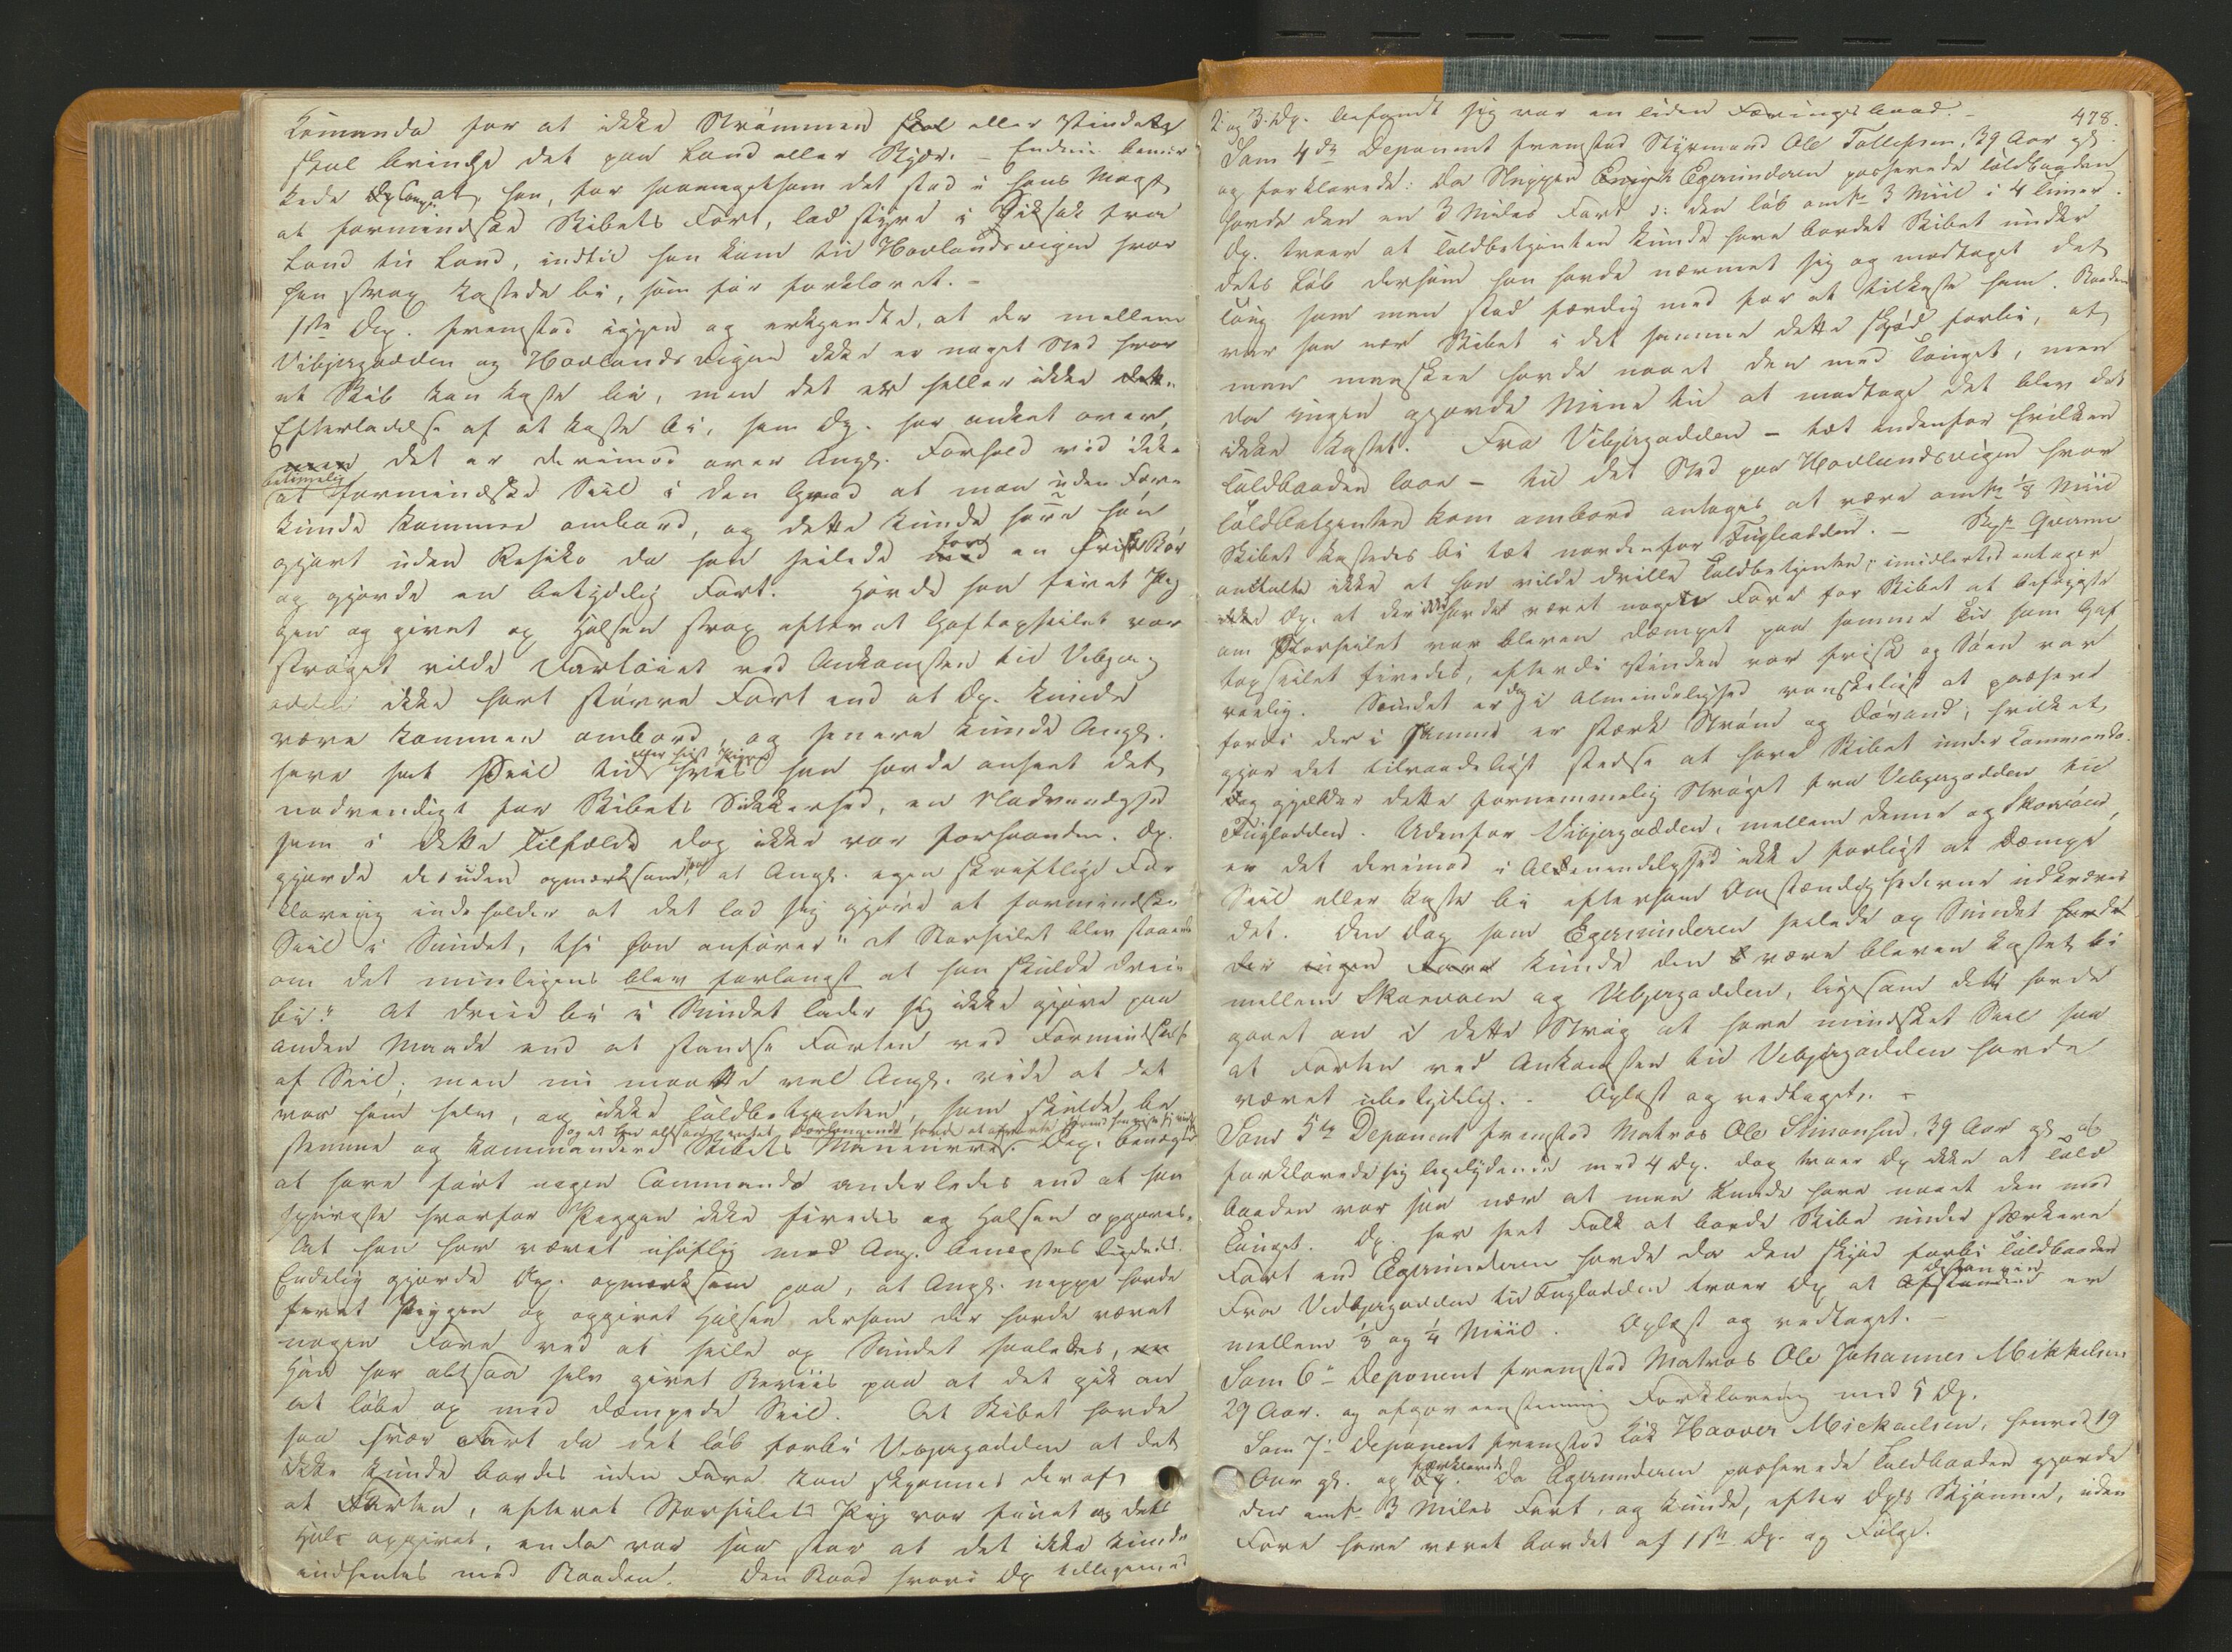 Kommando for at ikke Strømmen skal eller Vinden
skal bringe det paa Land eller Skjær. – Endnu bemær
kede at han, for saameget som det stod i hans Magt
at formindske Skibets Fart, lod styre i Siksak fra
Land til Land, indtil han kom til Hovlandsvigen hvor
han strax kastede bi, som før forklaret. –
1ste Dep. fremstod igjen og erkjendte, at der mellem
Vibjergodden og Hovlandsvigen ikke er noget Sted hvor
et Skib kan kaste bi, men det er heller ikke
Efterladelse af at kaste bi, som Dp. har anket over,
men det er derimod over Angs. Forhold ved ikke
betimelig
at formindske Seil i den Grad at man uden Fare
kunde komme ombord, og dette kunde have han
gjort uden Resiko da han seilede for en frisk Bør
og gjorde en betydelig Fart. Havde han firet Pig
gen og givet op Halsen strax efterat Gaftopseilet var
strøget vilde Fartøiet ved Ankomsten til Vibjerg
odden ikke havt større Fart end at Dp. kunde
være kommen ombord, og senere kunde Angs.
eller heist Piggen
have sat Seil til hvis han havde anseet det
nødvendigt for Skibets Sikkerhed, en Nødvendighed
som i dette Tilfælde dog ikke var forhaanden. Dp.
gjorde desuden opmærksom paa, at Angs. egen skriftlige For
klaring indeholder at det lod sig gjøre at formindske
Seil i Sundet, thi han anfører "at Storseilet blev staaende
om det muligens blev forlangt at han skulde dreie
bi." At dreie bi i Sundet lader sig ikke gjøre paa
anden Maade end at standse Farten ved Formindskelse
af Seil; men nu maatte vel Angs. vide at det
var ham selv, og ikke Toldbetjenten, som skulde be
stemme og kommandere Skibets Manøuvres. Dep. benægter
at have ført nogen Commando anderledes end at han
spurgte hvorfor Piggen ikke firedes og Halsen opgaves.
At han har været uhøflig mod Ang. benægtes ligeledes.
Endelig gjorde Dp. opmærksom paa, at Angs. neppe havde
firet Piggen og opgivet Halsen dersom der havde været
nogen Fare ved at seile op Sundet saaledes,
Han har altsaa selv givet Beviis paa at det gik an
at løbe op med dæmpede Seil. At Skibet havde
saa svær Fart da det løb forbi Vibjergodden at det
ikke kunde bordes uden Fare kan skjønnes deraf
at Farten, efterat Storseilets Pig var firet og dets
Hals opgivet, endda var saa stor at det ikke kunde
indhentes med Baaden. Den Baad hvori Dp tilligemed
478.
2 og 3 Dp. befandt sig var en liden Færingsbaad. –
Som 4de Deponent fremstod Styrmand Ole Tollefsen, 39 Aar gl.
og forklarede: Da Skippen Egerunderen passerede Toldbaaden
havde den en 3 Miles Fart ɔ: den løb omtr. 3 Miil i 4 Timer.
Dp. troer at Toldbetjenten kunde have bordet Skibet under
dets Løb dersom han havde nærmet sig og modtaget det
Toug som man stod færdig med for at tilkaste ham. Baaden
var saa nær Skibet i det samme dette skjød forbi, at
man maaskee havde naaet den med Touget, men
da ingen gjorde Mine til at modtage det blev det
ikke kastet. Fra Vibjergodden – tæt indenfor hvilken
Toldbaaden laae – til det Sted paa Hovlandsvigen hvor
Toldbetjenten kom ombord antages at være omtr. 1/8 Miil
Skibet kastedes bi tæt nordenfor Fugleodden. –
ikke at han vilde drille Toldbetjenten; imidlertid antager
Dp. at der ikke havde været nogen Fare for Skibet at befrygte
om Storseilet var bleven dæmpet paa samme Tid som Gaf
topseilet firedes, efterdi Vinden var frisk og Søen var
rolig. Sundet er dog i Almindelighed vanskeligt at passere
fordi der i samme er stærk Strøm og Døvand; hvilket
gjør det tilraadeligst stedse at have Skibet under Kommando.
Dog gjælder dette fornemmelig Strøget fra Vibjergodden til
Fugleodden. Udenfor Vibjergodden, mellem denne og Skarvøen,
er det derimod i Almindelighed ikke farligt at dæmpe
Seil eller kaste bi eftersom Omstændighederne udkræver
det. Den Dag som Egerunderen seilede op Sundet havde
der ingen Fare kunde den være bleven kastet bi
mellem Skarvøen og Vibjergodden, ligesom det havde
gaaet an i dette Strøg at have mindsket Seil saa
at Farten ved Ankomsten til Vibjergodden havde
været ubetydelig. – Oplæst og vedtaget. –
Som 5te Deponent fremstod Matros Ole Simonsen, 39 Aar gl. og
forklarede sig ligelydende med 4 Dp. dog troer Dp ikke at Told
baaden var saa nær at man kunde have naaet den med
Touget. Dp. har seet Folk at borde Skibe under stærkere
Fart end Egerunderen havde da den skjød forbi Toldbaaden
Distancen
Fra Vidbjergodden til Fugleodden troer Dp at Afstanden er
mellem 1/8 og 1/4 Miil. Oplæst og vedtaget. –
Som 6te Deponent fremstod Matros Ole Johannes Mikkelsen
29 Aar. og afgav eenstemmig Forklaring med 5 Dp.
Som 7de Deponent fremstod Kok Haaver Mickaelsen, henved 19
forklarede
Aar gl. og Dp. Da Egerunderen passerede Toldbaaden gjorde
den omtr. 3 Miles Fart, og kunde, efter Dpts Skjønne, uden
Fare have været bordet af 1ste Dp. og Følge.